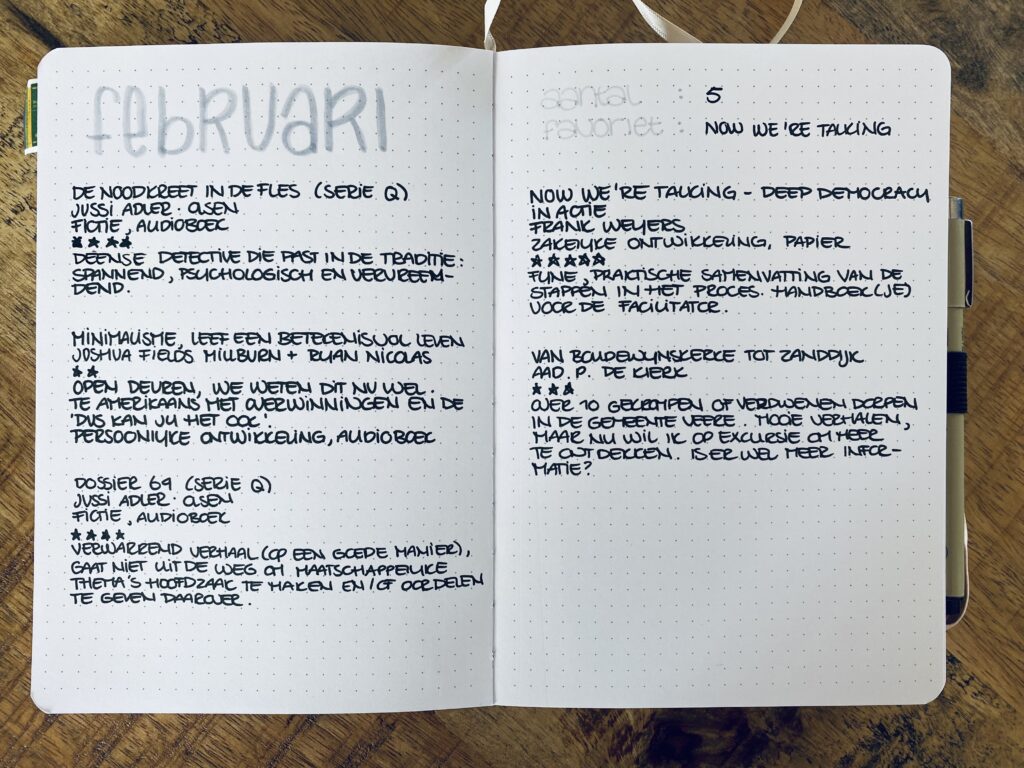 februari
DE NOODKREET IN DE FLES (SERIE Q)
JUSSI ADLER-OLSEN
FICTIE, AUDIOBOEK
★★★★
DEENSE DETECTIVE DIE PAST IN DE TRADITIE:
SPANNEND, PSYCHOLOGISCH EN VERVREEM-
DEND.
MINIMALISME, LEEF EEN BETEKENISVOL LEVEN
JOSHUA FIELDS MILLBURN + RYAN NICOLAS
★★
OPEN DEUREN, WE WETEN DIT NU WEL.
TE AMERIKAANS MET OVERWINNINGEN EN DE
'DUS KAN JIJ HET OOK'.
PERSOONLIJKE ONTWIKKELING, AUDIOBOEK
DOSSIER 64 (SERIE Q)
JUSSI ADLER-OLSEN
FICTIE, AUDIOBOEK
★★★★
VERWARREND VERHAAL (OP EEN GOEDE MANIER),
GAAT NIET UIT DE WEG OM MAATSCHAPPELIJKE
THEMA'S HOOFDZAAK TE MAKEN EN/OF OORDELEN
TE GEVEN DAAROVER.
aantal : 5
favoriet : NOW WE'RE TALKING
NOW WE'RE TALKING - DEEP DEMOCRACY
IN ACTIE
FRANK WEIJERS
ZAKELIJKE ONTWIKKELING, PAPIER
★★★★★
FIJNE, PRAKTISCHE SAMENVATTING VAN DE
STAPPEN IN HET PROCES. HANDBOEK(JE)
VOOR DE FACILITATOR.
VAN BOUDEWIJNSKERKE TOT ZANDDIJK
AAD. P. DE KLERK
★★★
OVER 70 GEKROMPEN OF VERDWENEN DORPEN
IN DE GEMEENTE VEERE. MOOIE VERHALEN,
MAAR NU WIL IK OP EXCURSIE OM MEER
TE ONTDEKKEN. IS ER WEL MEER INFOR-
MATIE?